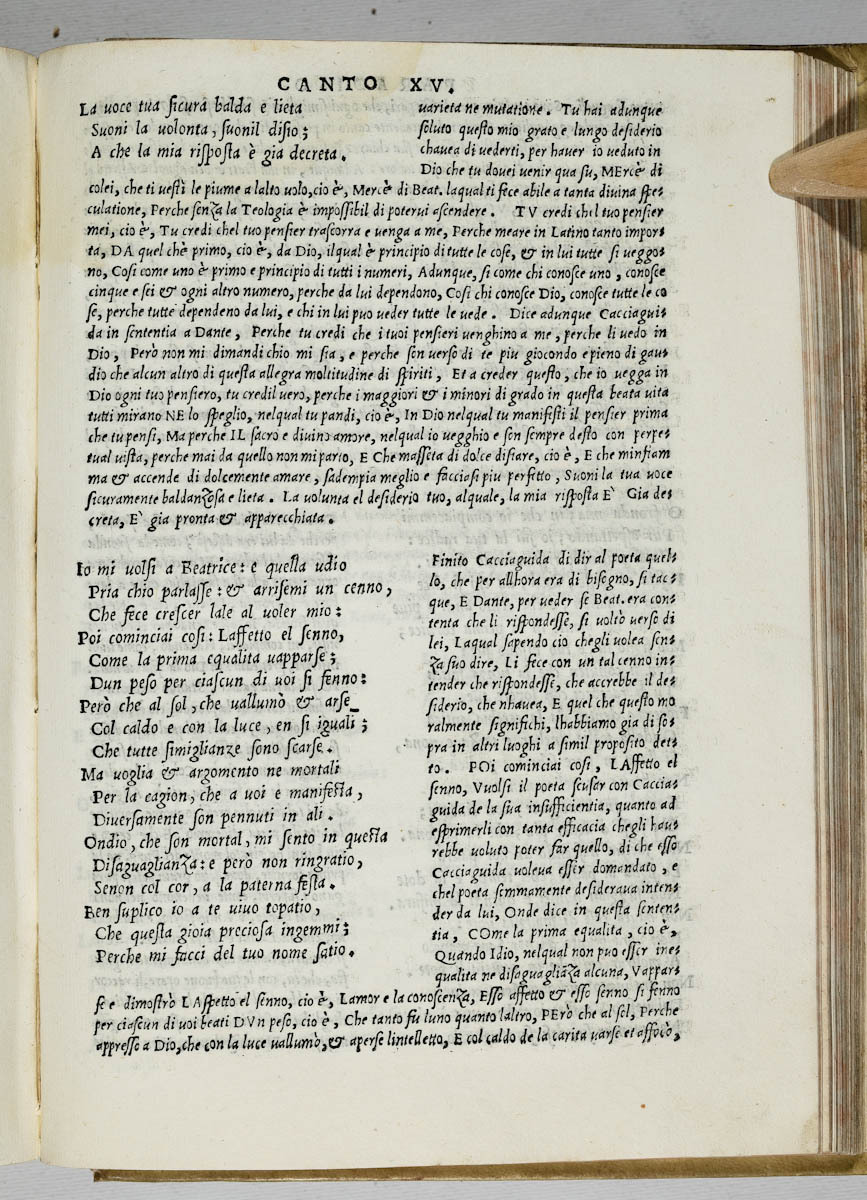 CANTO XV.
La uoce tua sicura balda e lieta
Suoni la uolonta, suonil disio;
A che la mia risposta è gia decreta.
uarieta ne mutatione. Tu hai adunque
soluto questo mio grato e lungo desiderio
chauea di uederti, per hauer io ueduto in
Dio che tu douei uenir qua su, MErcè di
colei, che ti uestì le piume a lalto uolo, cio è, Mercè di Beat. laqual ti fece abile a tanta diuina spe-
culatione, Perche senza la Teologia è impossibil di poterui ascendere. TV credi chel tuo pensier
mei, cio è, Tu credi chel tuo pensier trascorra e uenga a me, Perche meare in Latino tanto impor-
ta, DA quel chè primo, cio è, da Dio, ilqual è principio di tutte le cose, & in lui tutte si ueggo-
no, Cosi come uno è primo e principio di tutti i numeri, Adunque, si come chi conosce uno, conosce
cinque e sei & ogni altro numero, perche da lui dependono, Cosi chi conosce Dio, conosce tutte le co
se, perche tutte dependeno da lui, e chi in lui puo ueder tutte le uede. Dice adunque Cacciagui-
da in sententia a Dante, Perche tu credi che i tuoi pensieri uenghino a me, perche li uedo in
Dio, Però non mi dimandi chio mi sia, e perche son uerso di te piu giocondo e pieno di gau-
dio che alcun altro di questa allegra moltitudine di spiriti, Et a creder questo, che io uegga in
Dio ogni tuo pensiero, tu credil uero, perche i maggiori & i minori di grado in questa beata uita
tutti mirano NE lo speglio, nelqual tu pandi, cio è, In Dio nelqual tu manifesti il pensier prima
che tu pensi, Ma perche IL sacro e diuino amore, nelqual io uegghio e son sempre desto con perpe-
tual uista, perche mai da quello non mi pario, E Che masseta di dolce disiare, cio è, E che minfiam
ma & accende di dolcemente amare, sadempia meglio e facciasi piu perfetto, Suoni la tua uoce
sicuramente baldanzosa e lieta. La uolunta el desiderio tuo, alquale, la mia risposta E' Gia de-
creta, E' gia pronta & apparecchiata.
Io mi uolsi a Beatrice: e quella udio
Pria chio parlasse: & arrisemi un cenno,
Che fece crescer lale al uoler mio:
Poi cominciai cosi: Laffetto el senno,
Come la prima equalita uapparse;
Dun peso per ciascun di uoi si fenno:
Però che al sol, che uallumò & arse
Col caldo e con la luce, en si iguali;
Che tutte simiglianze sono scarse.
Ma uoglia & argomento ne mortali
Per la cagion, che a uoi e manifesta,
Diuersamente son pennuti in ali.
Ondio, che son mortal, mi sento in questa
Disaguaglianza: e però non ringratio,
Senon col cor, a la paterna festa.
Ben suplico io a te uiuo topatio,
Che questa gioia preciosa ingemmi;
Perche mi facci del tuo nome satio.
Finito Cacciaguida di dir al poeta quel-
lo, che per allhora era di bisogno, si tac-
que, E Dante, per ueder se Beat. era con-
tenta che li rispondesse, si uoltò uerso di
lei, Laqual sapendo cio chegli uolea sen-
za suo dire, Li fece con un tal cenno in-
tender che rispondesse, che accrebbe il de-
siderio, che nhauea, E quel che questo mo
ralmente significhi, lhabbiamo gia di so-
pra in altri luoghi a simil proposito det-
to. POi cominciai cosi, LAffetto el
senno, Vuolsi il poeta scusar con Caccia-
guida de la sua insufficientia, quanto ad
esprimerli con tanta efficacia chegli hau-
rebbe uoluto poter far quello, di che esso
Cacciaguida uoleua esser domandato, e
chel poeta semmamente desideraua inten-
der da lui, Onde dice in questa senten-
tia, COme la prima equalita, cio è,
Quando Idio, nelqual non puo esser ine-
qualita ne disaguaglianza alcuna, Vappar-
se e dimostrò LAffetto el senno, cio è, Lamor e la conoscenza, Esso affetto & esso senno si fenno
per ciascun di uoi beati DVn peso, cio è, Che tanto fu luno quanto laltro, PErò che al sol, Perche
appresso a Dio, che con la luce uallumò, & aperse lintelletto, E col caldo de la carita uarse et affocò,